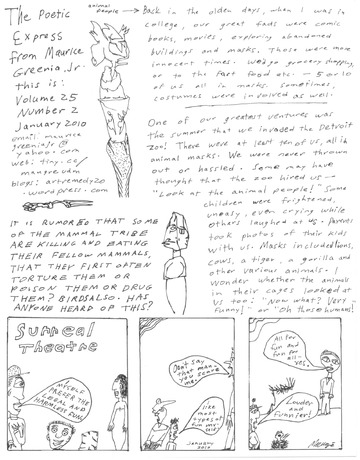 The Poetic
Express
from Maurice
Greenia, Jr.
this is:
Volume 25
Number 2
January 2010
email: maurice
greenia jr @
yahoo.com
web: tiny.cc/
blogs: artremedy20
.wordpress.com
animal
people
Back in the olden days, when I was in
college, our great fads were comic
books, movies, exploring abandoned
buildings and masks. Those were more
innocent times. We'd go grocery shopping,
or to the fast food etc. — 5 or 10
of us all in masks. Sometimes,
costumes were involved as well.
One of our greatest ventures was
the summer that we invaded the Detroit
Zoo! There were at least ten of us, all in
animal masks. We were never thrown
out or hassled. Some may have
thought that the zoo hired us —
"Look at the animal people!" Some
children were frightened,
uneasy, even crying while
others laughed at us. Parents
took photos of their kids
with us. Masks included lions,
cows, a tiger, a gorilla and
other various animals. I
wonder whether the animals
in their cages looked at
us too: "Now what? Very
funny!" or "Oh those humans!
IT IS RUMORED THAT SOME
OF THE MAMMAL TRIBE
ARE KILLING AND EATING
THEIR FELLOW MAMMALS,
THAT THEY FIRST OFTEN
TORTURE THEM OR
POISON THEM OR DRUG
THEM? BIRDS ALSO. HAS
ANYONE HEARD OF THIS?
Surreal
Theatre
MYSELF
PREFER THE
LEGAL AND
HARMLESS FUN.
Don't say
that man,
you scare
me.
like
most
types of
fun my-
self.
January
2010
All for
fun and
fun for
all-
yes.
Louder
and
funnier!